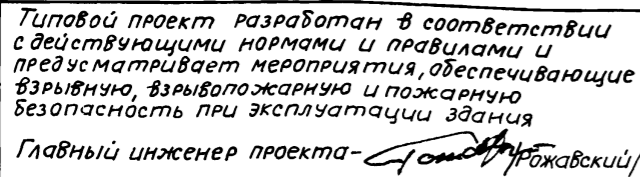 Типовой проект разработан в соответствии
с действующими нормами и правилами и
предусматривает мероприятия, обеспечивающие
взрывную, взрывопожарную и пожарную
безопасность при эксплуатации здания
Главный инженер проекта- /Рожавский/